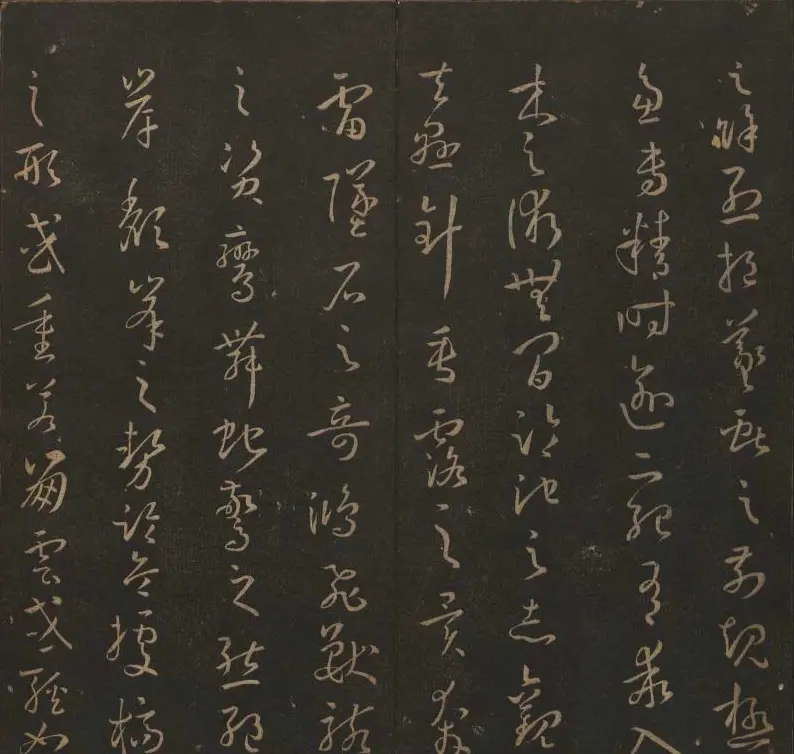 之餘烈挹羲獻之前規極
慮專精時逾二紀有乖入
木之術無間臨池之志觀
夫懸針垂露之異奔
雷墜石之奇鴻飛獸駭
之資鸞舞蛇驚之態絕
岸頹峯之勢臨危據槁
之形或重若崩雲或輕如